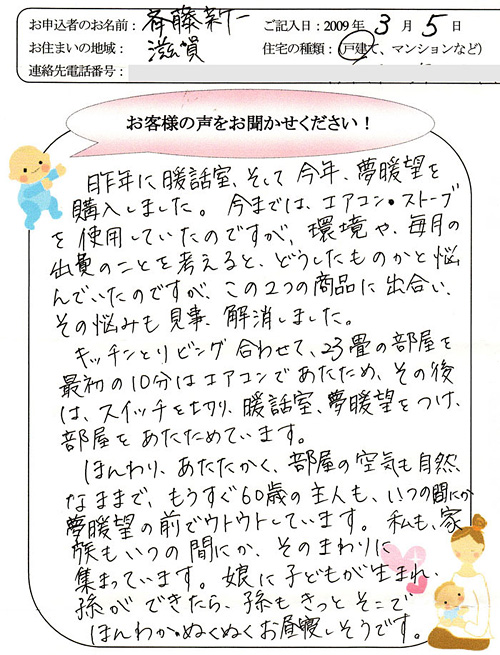 お申込者のお名前： 斉藤新一
ご記入日：2009年 3月 5日
お住まいの地域： 滋賀
住宅の種類：（戸建て、マンションなど）
連絡先電話番号：
お客様の声をお聞かせください！
昨年に暖話室、そして今年、夢暖望を
購入しました。今までは、エアコン・ストーブ
を使用していたのですが、環境や、毎月の
出費のことを考えると、どうしたものかと悩
んでいたのですが、この2つの商品に出合い、
その悩みも見事、解消しました。
キッチンとリビング合わせて、23畳の部屋を
最初の10分はエアコンであたため、その後
は、スイッチを切り、暖話室、夢暖望をつけ、
部屋をあたためています。
ほんわり、あたたかく、部屋の空気も自然
なままで、もうすぐ60歳の主人も、いつの間にか
夢暖望の前でウトウトしています。私も、家
族もいつの間にか、そのまわりに
集まっています。娘に子どもが生まれ、
孫ができたら、孫もきっとそこで
ほんわか・ぬくぬくお昼寝しそうです。